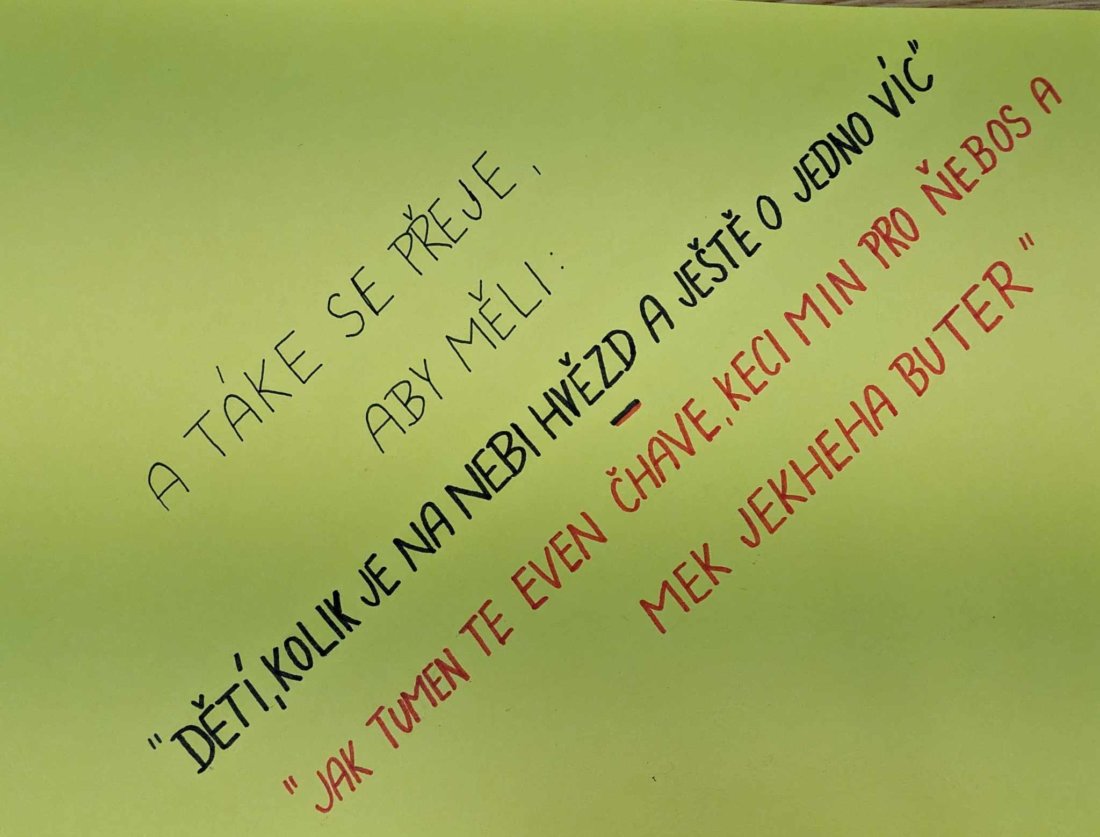 A TÁKE SE PŘEJE,
ABY MĚLI:
"DĚTÍ, KOLIK JE NA NEBI HVĚZD A JEŠTĚ O JEDNO VÍC"
"JAK TUMEN TE EVEN ČHAVE, KECI MIN PRO ŇEBOS A
MEK JEKHEHA BUTER"